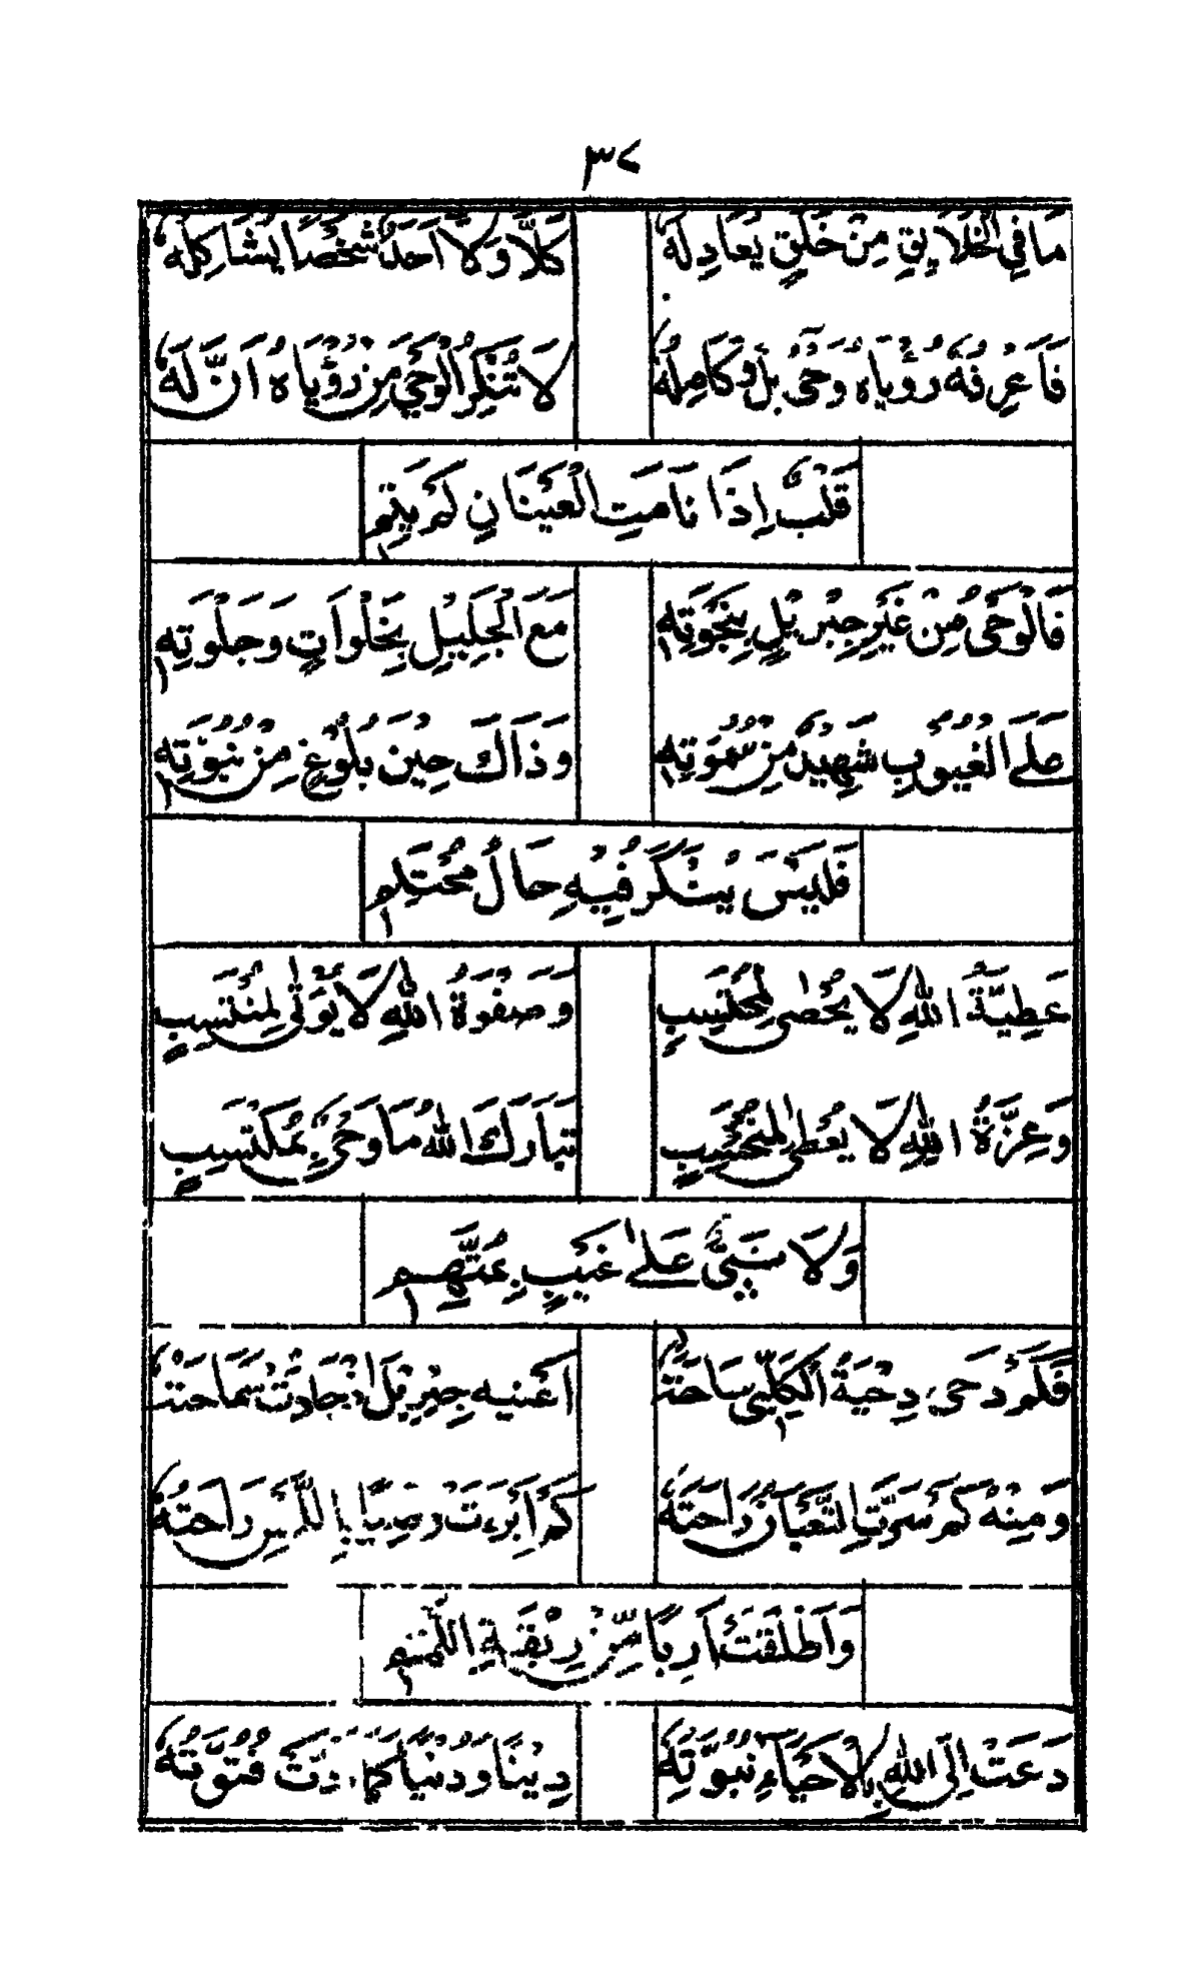 ٣٢
مَا فِي الْخَلَايِقِ مِنْ خَلْقٍ يُعَادِلُهٗ كَلَّا وَلَا اَحَدٌ شَخْصًا يُشَاكِلُهٗ
فَاعْرِفْهُ رُؤْيَاهُ وَحْىٌ بَلْ وَكَامِلُهٗ لَا تُنْكِرُ الْوَحْيَ مِنْ رُؤْيَاهُ اَنَّ لَهٗ
قَلْبٌ اِذَا نَامَتِ الْعَيْنَانِ لَمْ يَنَمِ
فَالْوَحْىُ مِنْ غَيْرِ جِبْرِيْلٍ بِنَجْوَتِهٖ مَعَ الْجَلِيْلِ بِخَلْوَاتٍ وَجَلْوَتِهٖ
عَلَى الْغُيُوْبِ شَهِيْدٌ مِنْ سُمُوَّتِهٖ وَذَاكَ حِيْنَ بُلُوْغٍ مِنْ نُبُوَّتِهٖ
فَلَيْسَ يُنْكَرُ فِيْهِ حَالُ مُحْتَلِمٖ
عَطِيَّةُ اللهِ لَا يُحْصٰى لِمُحْتَسِبٍ وَصَفْوَةُ اللهِ لَا يُؤْتٰى لِمُنْتَسِبٍ
وَعِزَّةُ اللهِ لَا يُعْطٰى لِمُنْحَسِبٍ تَبَارَكَ اللهُ مَا وَحْىٌ بِمُكْتَسِبٍ
وَلَا نَبِىٌّ عَلٰى غَيْبٍ بِمُتَّهَمٖ
فَكَمْ دَحٰى دِحْيَةُ الْكَلْبِيِّ سَاحَتَهٗ اَعْنِيْهِ جِبْرِيْلَ اِذْ جَادَتْ سَمَاحَتُهٗ
وَمِنْهُ كَمْ سَرَّتِ التَّعْبَانَ رَاحَتُهٗ كَمْ اَبْرَءَتْ وَصِبًا بِاللَّمْسِ رَاحَتُهٗ
وَاَطْلَقَتْ اَرِبًا مِّنْ رِبْقَةِ اللَّمَمٖ
دَعَتْ اِلَى اللهِ بِالْاَحْيَاءِ نُبُوَّتُهٗ دِيْنًا وَدُنْيًا كَمَا زَتْ فُتُوَّتُهٗ